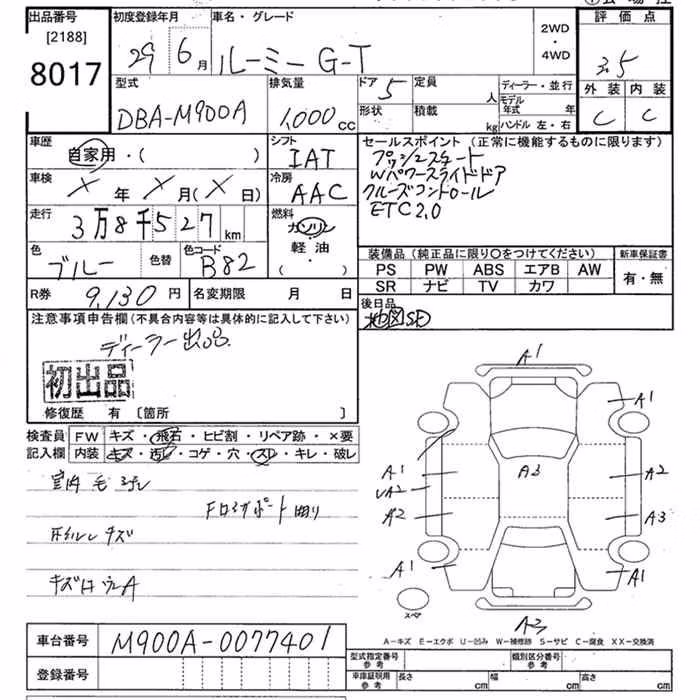 出品番号
[2188]
8017
初度登録年月
29 6月
車名・グレード
ルーミー G-T
2WD
・
4WD
評価点
3.5
外装 内装
C C
型式
DBA-M900A
排気量
1,000cc
ドア 5
形状
定員 人
積載 kg
ディーラー・並行
モデル年式 年
ハンドル 左・右
車歴
自家用・( )
シフト
IAT
車検
X年 X月(X日)
冷房
AAC
走行
3万8千527km
燃料
ガソリン
軽油
( )
色
ブルー
色替
色コード
B82
R券 9,130円
名変期限 月 日
セールスポイント(正常に機能するものに限ります)
プッシュスタート
Wパワースライドドア
クルーズコントロール
ETC2.0
装備品(純正品に限り○をつけてください)
PS PW ABS エアB AW
SR ナビ TV カワ
新車保証書
有・無
後日品
地図SD
注意事項申告欄(不具合内容等は具体的に記入して下さい)
ディーラー出品
初出品
修復歴 有 〔箇所 〕
検査員記入欄
FW キズ・飛石・ヒビ割・リペア跡・×要
内装 キズ・汚レ・コゲ・穴・スレ・キレ・破レ
室内
キズ
A
A1
A1
A1
A2
A3
A2
A3
A2
A3
A1
A1
スペア
A3
A-キズ E-エクボ U-凹み W-補修跡 S-サビ C-腐食 XX-交換済
車台番号
M900A-0077401
登録番号
型式指定番号
参考
類別区分番号
参考
車庫証明用
参考
長さ cm
幅 cm
高さ cm